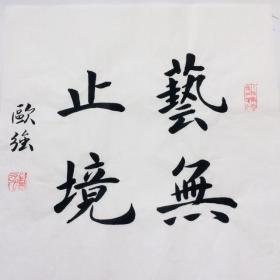 藝無
止境
歐強